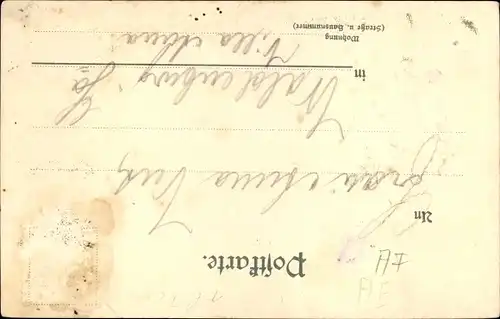 Postkarte.
An
Frau Anna
in Waldenburg Sa
Villa Anna
Wohnung
(Straße u. Hausnummer)
AF
AE